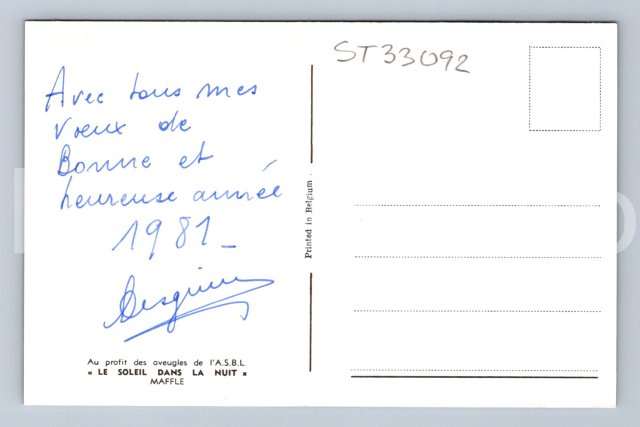 ST33092
Avec tous mes
voeux de
Bonne et
heureuse année
1981_
Printed in Belgium.
Au profit des aveugles de l'A.S.B.L.
« LE SOLEIL DANS LA NUIT »
MAFFLE